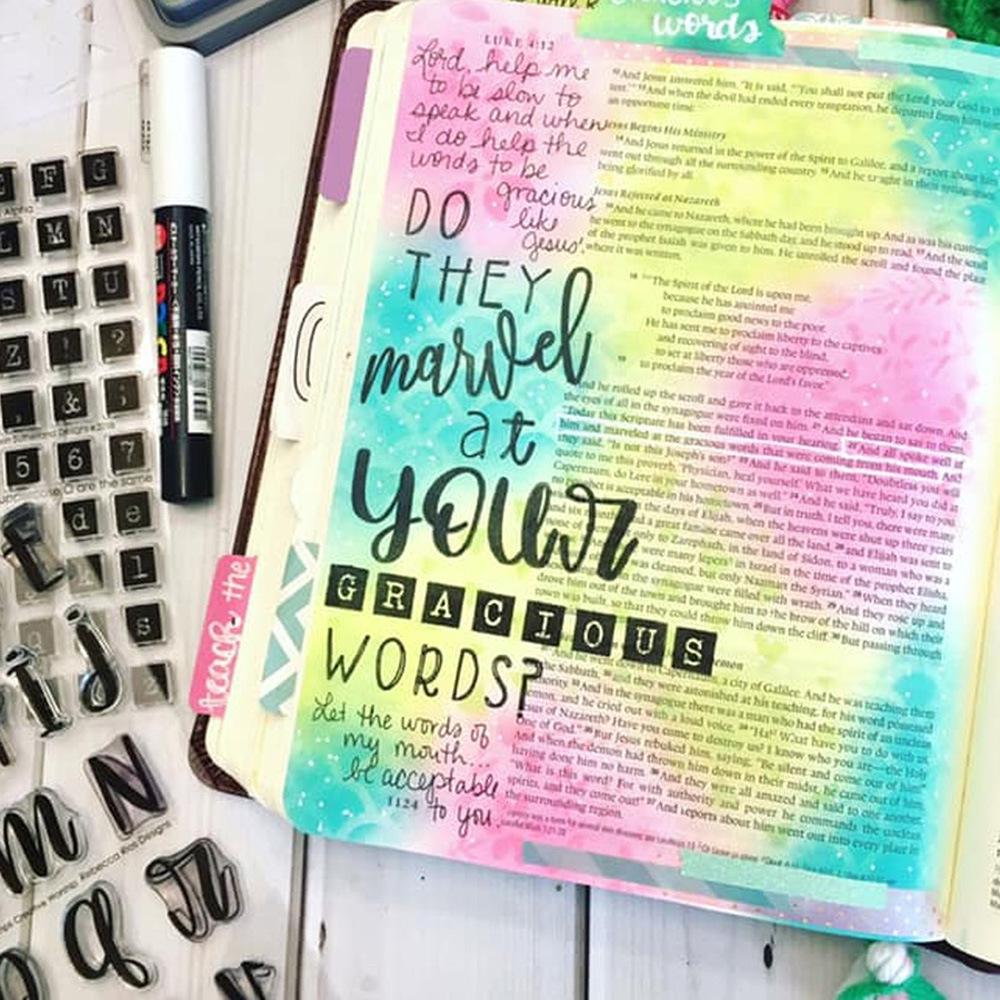 gracious
words
LUKE 4:12
Lord, help me
to be slow to
speak and when
I do help the
words to be
gracious
like
Jesus'.
DO
THEY
marvel
at
your
GRACIOUS
WORDS?
Let the words of
my mouth...
be acceptable
to you.
1124
teach the
And Jesus answered him, "It is said, 'You shall not put the Lord your God to the
test.'" And when the devil had ended every temptation, he departed from him until
an opportune time.
Jesus Begins His Ministry
And Jesus returned in the power of the Spirit to Galilee, and a report about him
went out through all the surrounding country. And he taught in their synagogues,
being glorified by all.
Jesus Rejected at Nazareth
And he came to Nazareth, where he had been brought up. And as was his custom,
he went to the synagogue on the Sabbath day, and he stood up to read. And the scroll
of the prophet Isaiah was given to him. He unrolled the scroll and found the place
where it was written,
"The Spirit of the Lord is upon me,
because he has anointed me
to proclaim good news to the poor.
He has sent me to proclaim liberty to the captives
and recovering of sight to the blind,
to set at liberty those who are oppressed,
to proclaim the year of the Lord's favor."
And he rolled up the scroll and gave it back to the attendant and sat down. And
the eyes of all in the synagogue were fixed on him. And he began to say to them,
"Today this Scripture has been fulfilled in your hearing." And all spoke well of
him and marveled at the gracious words that were coming from his mouth. And
they said, "Is not this Joseph's son?" And he said to them, "Doubtless you will
quote to me this proverb, 'Physician, heal yourself.' What we have heard you did at
Capernaum, do here in your hometown as well." And he said, "Truly, I say to you,
no prophet is acceptable in his hometown. But in truth, I tell you, there were many
in the days of Elijah, when the heavens were shut up three years
and six months, and a great famine came over all the land, and Elijah was sent to
none of only to Zarephath, in the land of Sidon, to a woman who was
were many lepers in Israel in the time of the prophet Elisha,
was cleansed, but only Naaman the Syrian." When they heard
in the synagogue were filled with wrath. And they rose up and
drove him out of the town and brought him to the brow of the hill on which their
town was built, so that they could throw him down the cliff. But passing through
And he went down to Capernaum, a city of Galilee. And he was teaching them
the Sabbath, and they were astonished at his teaching, for his word possessed
authority. And in the synagogue there was a man who had the spirit of an unclean
demon, and he cried out with a loud voice, "Ha! What have you to do with us,
Jesus of Nazareth? Have you come to destroy us? I know who you are—the Holy
One of God." But Jesus rebuked him, saying, "Be silent and come out of him!"
And when the demon had thrown him down in their midst, he came out of him,
having done him no harm. And they were all amazed and said to one another,
"What is this word? For with authority and power he commands the unclean
spirits, and they come out!" And reports about him went out into every place in
the surrounding region.
F G
L M N
S T U
Z ! ?
, & ;
5 6 7
d e
l
s
m N
a r